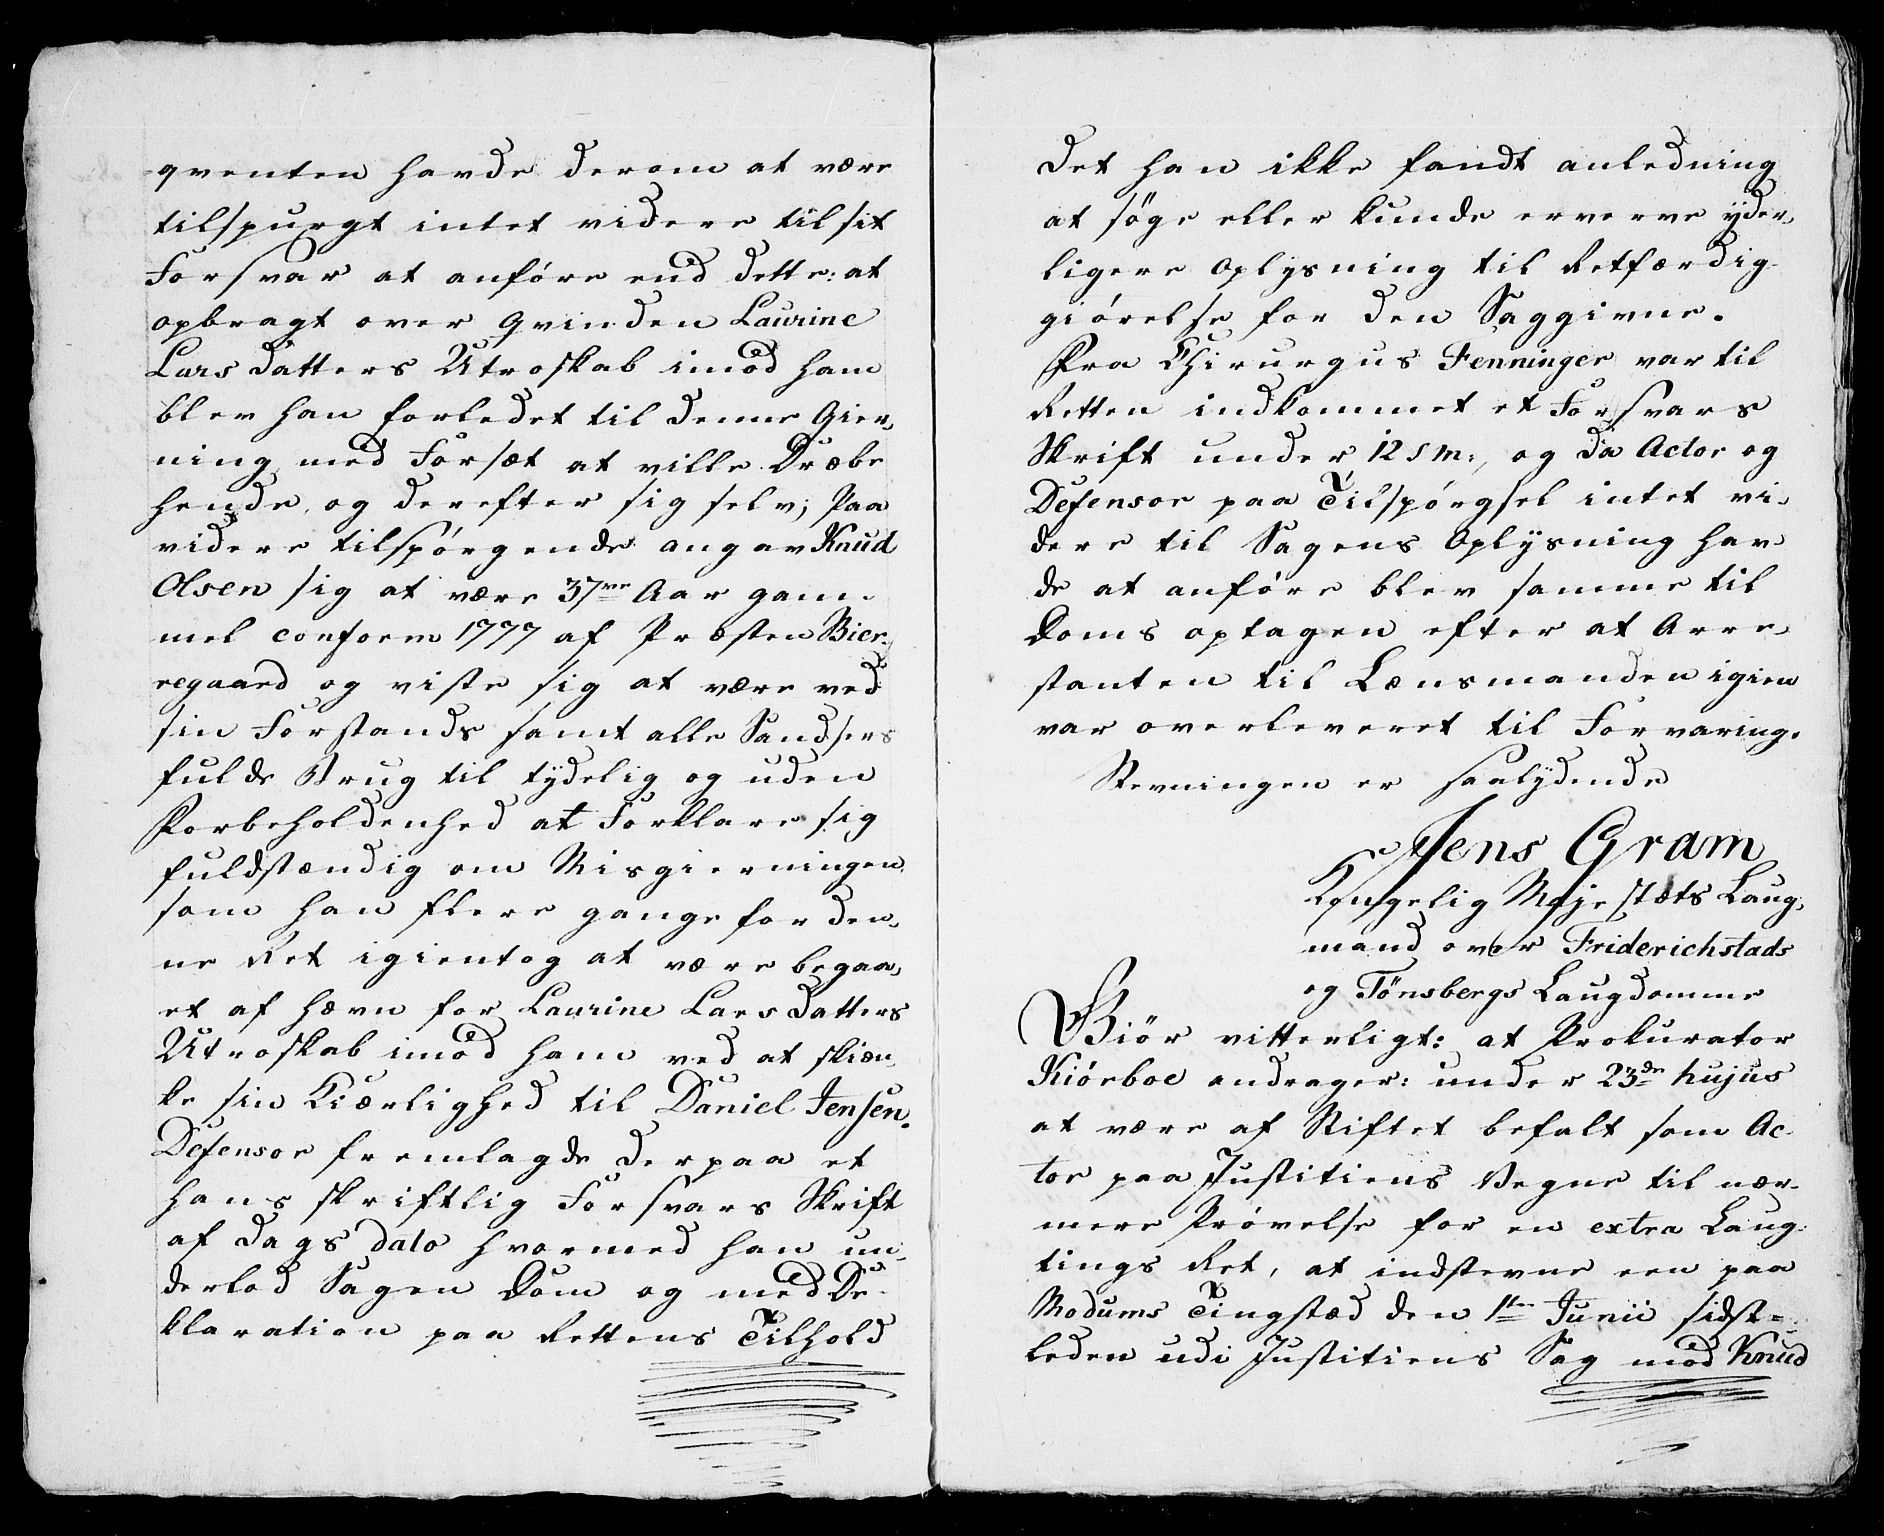 qventen havde derom at være
tilspurgt intet videre til sit
Forsvar at anføre end dette: at
opbragt over Qvinden Laurine
Lars datters Utroskab imod ham
blev han forledet til denne Gier„
ning med Forsæt at ville Dræbe
hende, og derefter sig selv; Paa
videre tilspørgende angav Knud
Olsen sig at være 37ve Aar gam„
mel conform 1777 af Præsten Bier„
regaard og viste sig at være ved
sin Forstands samt alle Sandsers
fulde Brug til tydelig og uden
Forbeholdenhed at Forklare sig
fuldstændig om Misgierningen
som han flere gange for den„
ne Ret igientog at være begaa„
et af hævn for Laurine Lars datters
Utroskab imod ham ved at skiæn„
ke sin Kiærlighed til Daniel Jensen.
Defensor fremlagde derpaa et
hans skriftlig Forsvars Skrift
af dags dato hvormed han un„
derlod Sagen Dom og med De„
klaration paa Rettens Tilhold
det han ikke fandt anledning
at søge eller kunde erverve yder„
ligere Oplysning til Retfærdig„
giørelse for den Saggivne.
Fra Chirurgus Fenninger var til
Retten indkommet et Forsvars
Skrift under 12 s m:, og da Actor og
Defensor paa Tilspørgsel intet vi„
dere til Sagens Oplysning hav„
de at anføre blev samme til
Doms optagen efter at Arre„
stanten til Lænsmanden igien
var overleveret til Forvaring.
Stevningen er saalydende
Jens Gram
Kongelig Majestæts Laug„
mand over Friderichstads
og Tönsbergs Laugdomme
Giör vitterligt: at Prokurator
Kiörboe andrager: under 23de hujus
at være af Stiftet befalt som Ac„
tor paa Justitiens Vegne til nær„
mere Prøvelse for en extra Laug„
tings Ret, at indstevne een paa
Modums Tingsted den 1ten Junii sidst=
leden udi Justitiens Sag mod Knud